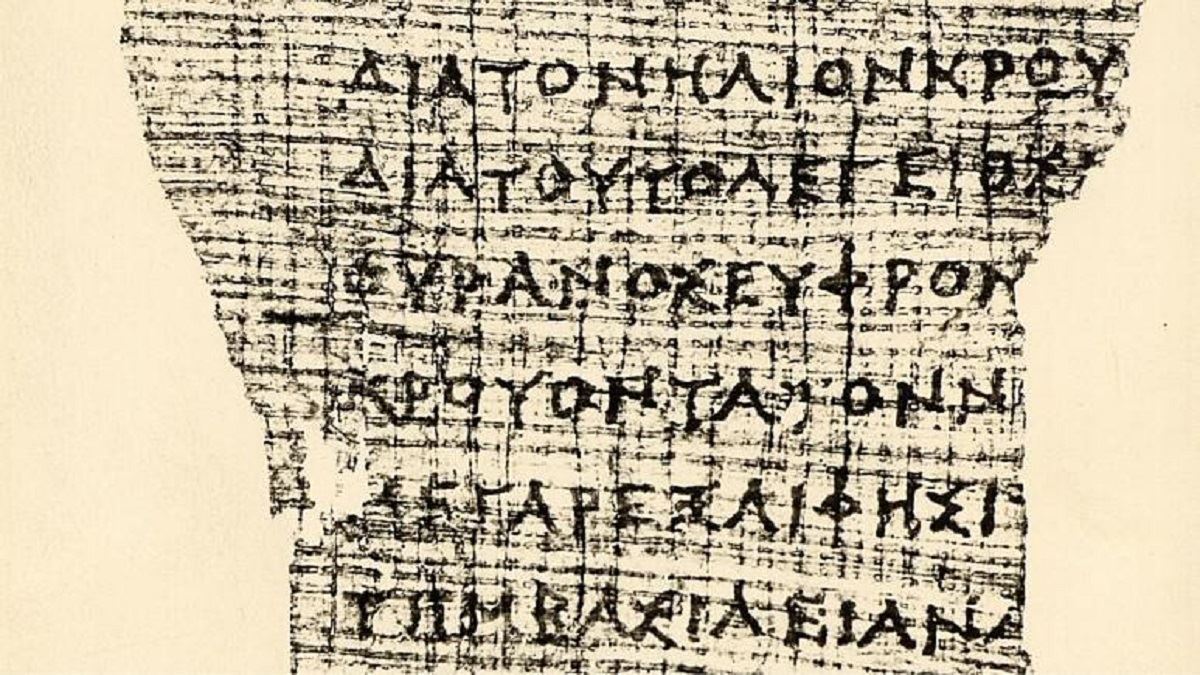 ΔΙΑΤΟΝΗΛΙΟΝΚΡΟΥ
ΔΙΑΤΟΥΤΟΛΕΓΕΙΟΣ
ΟΥΡΑΝΟΣΕΥΦΡΟΝ
ΚΡΟΥΟΝΤΑΤΟΝΝ
ΔΕΓΑΡΕΞΑΙΦΗΣΙ
ΡΤΗΜΒΑΣΙΛΕΙΑΝ